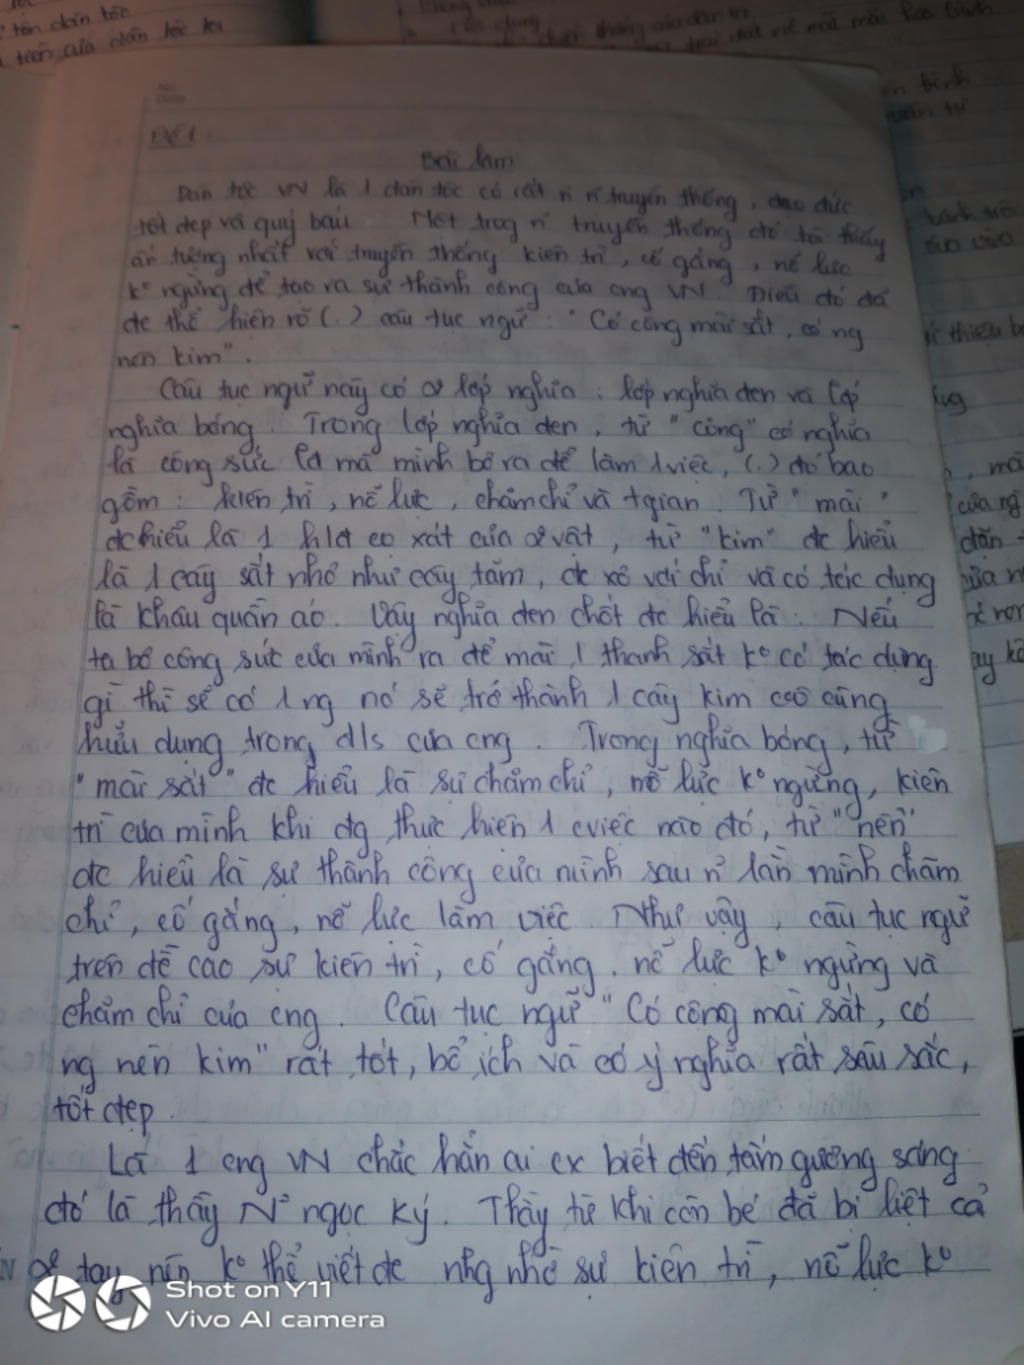 tôn dân tộc
triển của dân tộc ta
Đề 1
Bài làm
Dân tộc VN là 1 dân tộc có rất n n truyền thống, đạo đức
tốt đẹp và quý báu Một trog n truyền thống đó ta thấy
ấn tượng nhất với truyền thống kiên trì, cố gắng, nổ lực
k° ngừng để tạo ra sự thành công của cng VN. Điều đó đã
đc thể hiện rõ (.) câu tục ngữ: "Có công mài sắt, có ng
nên kim".
Câu tục ngữ này có 2 lớp nghĩa: lớp nghĩa đen và lớp
nghĩa bóng. Trong lớp nghĩa đen, từ "công" có nghĩa
là công sức là mà mình bỏ ra để làm 1 việc, (.) đó bao
gồm: kiên trì, nổ lực, chăm chỉ và tgian. Từ "mài"
đc hiểu là 1 h co xát của 2 vật, từ "kim" đc hiểu
là 1 cây sắt nhỏ như cây tăm, đc xỏ với chỉ và có tác dụng
là khâu quần áo. Vậy nghĩa đen chốt đc hiểu là: Nếu
ta bỏ công sức của mình ra để mài 1 thanh sắt k° có tác dụng
gì thì sẽ có 1 ng nó sẽ trở thành 1 cây kim vô cùng
hữu dụng trong đ/s của cng. Trong nghĩa bóng, từ
"mài sắt" đc hiểu là sự chăm chỉ, nổ lực k° ngừng, kiên
trì của mình khi đg thực hiện 1 cviệc nào đó, từ "nên"
đc hiểu là sự thành công của mình sau n lần mình chăm
chỉ, cố gắng, nổ lực làm việc. Như vậy, câu tục ngữ
trên đề cao sự kiên trì, cố gắng, nổ lực k° ngừng và
chăm chỉ của cng. Câu tục ngữ "Có công mài sắt, có
ng nên kim" rất tốt, bổ ích và có ý nghĩa rất sâu sắc,
tốt đẹp.
Là 1 cng VN chắc hẳn ai cx biết đến tấm gương sáng
đó là thầy N ngọc Ký. Thầy từ khi còn bé đã bị liệt cả
2 tay nên k° thể viết đc nhg nhờ sự kiên trì, nổ lực k°
Shot on Y11
Vivo AI camera